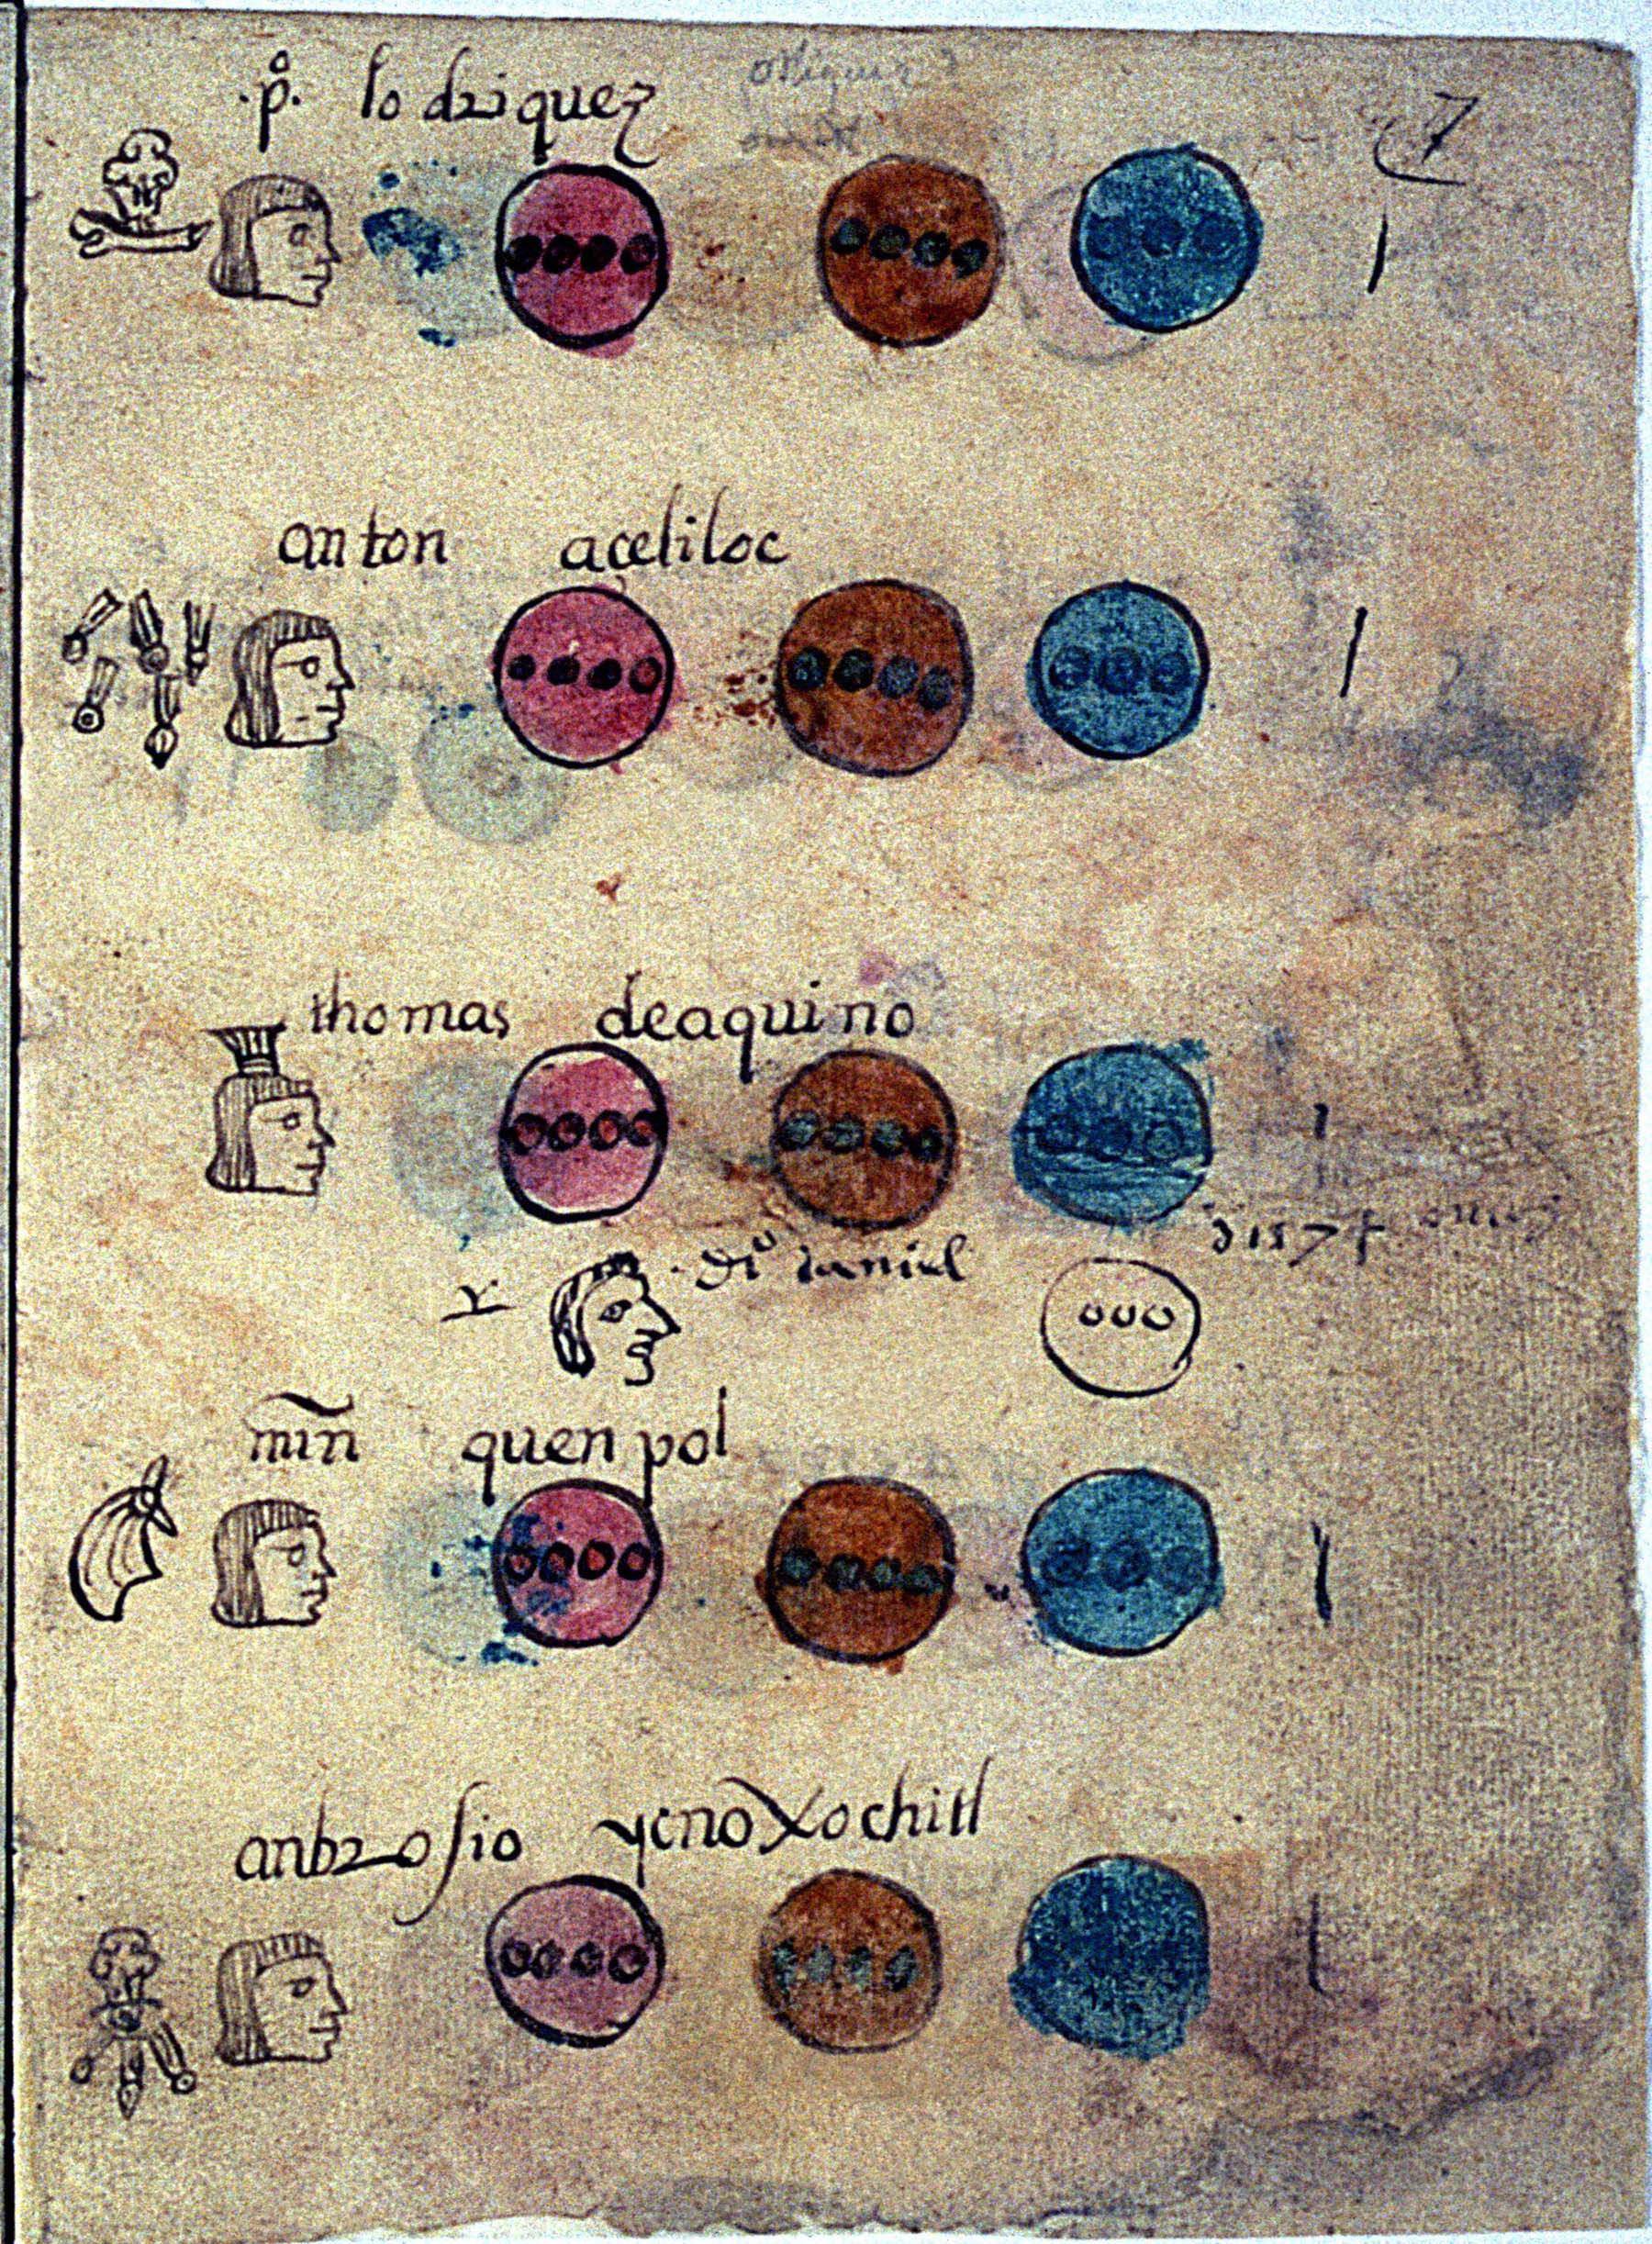 .p̊. lo driquez
7
anton aceliloc
thomas deaquino
dio daniel
1574
miñ quen pol
anbrosio ycnoxochitl